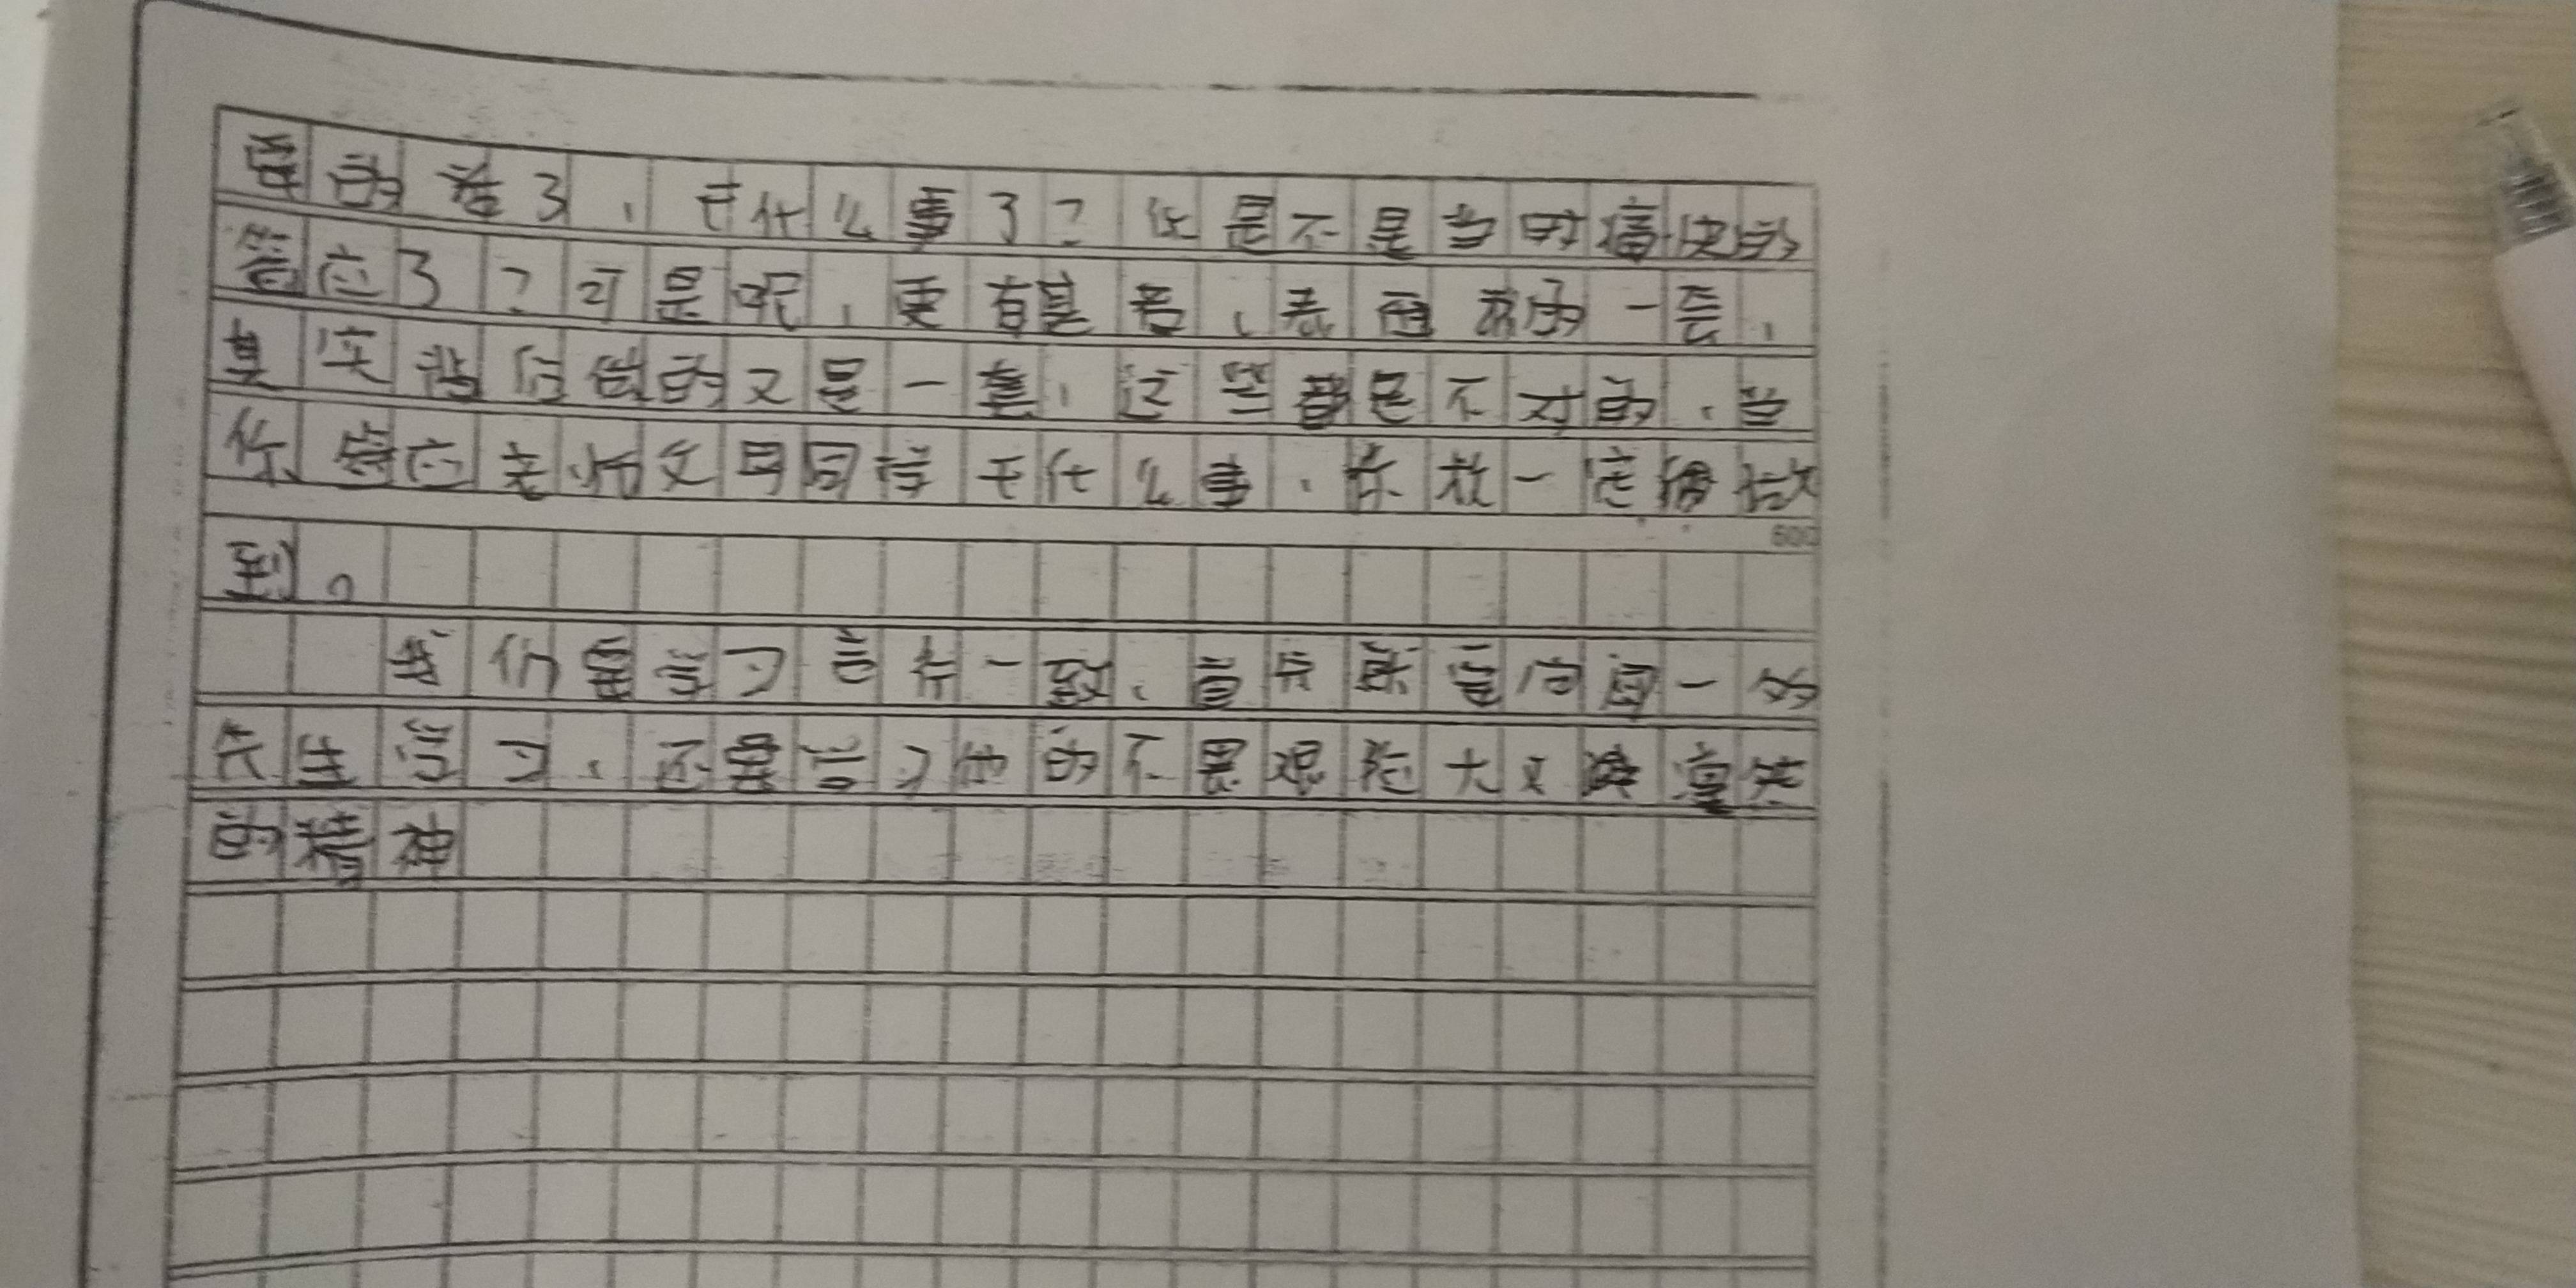 要的若了，干什么事了？你是不是当时痛快的
答应了？可是呢，更有甚者，表面做的一套，
其实背后做的又是一套，这些都是不对的，当
你答应老师父母同学干什么事，你就一定得做
到。
我们要学习言行一致，首先就要向闻一多
先生学习，还要学习他的不畏艰险大义凛然
的精神
600